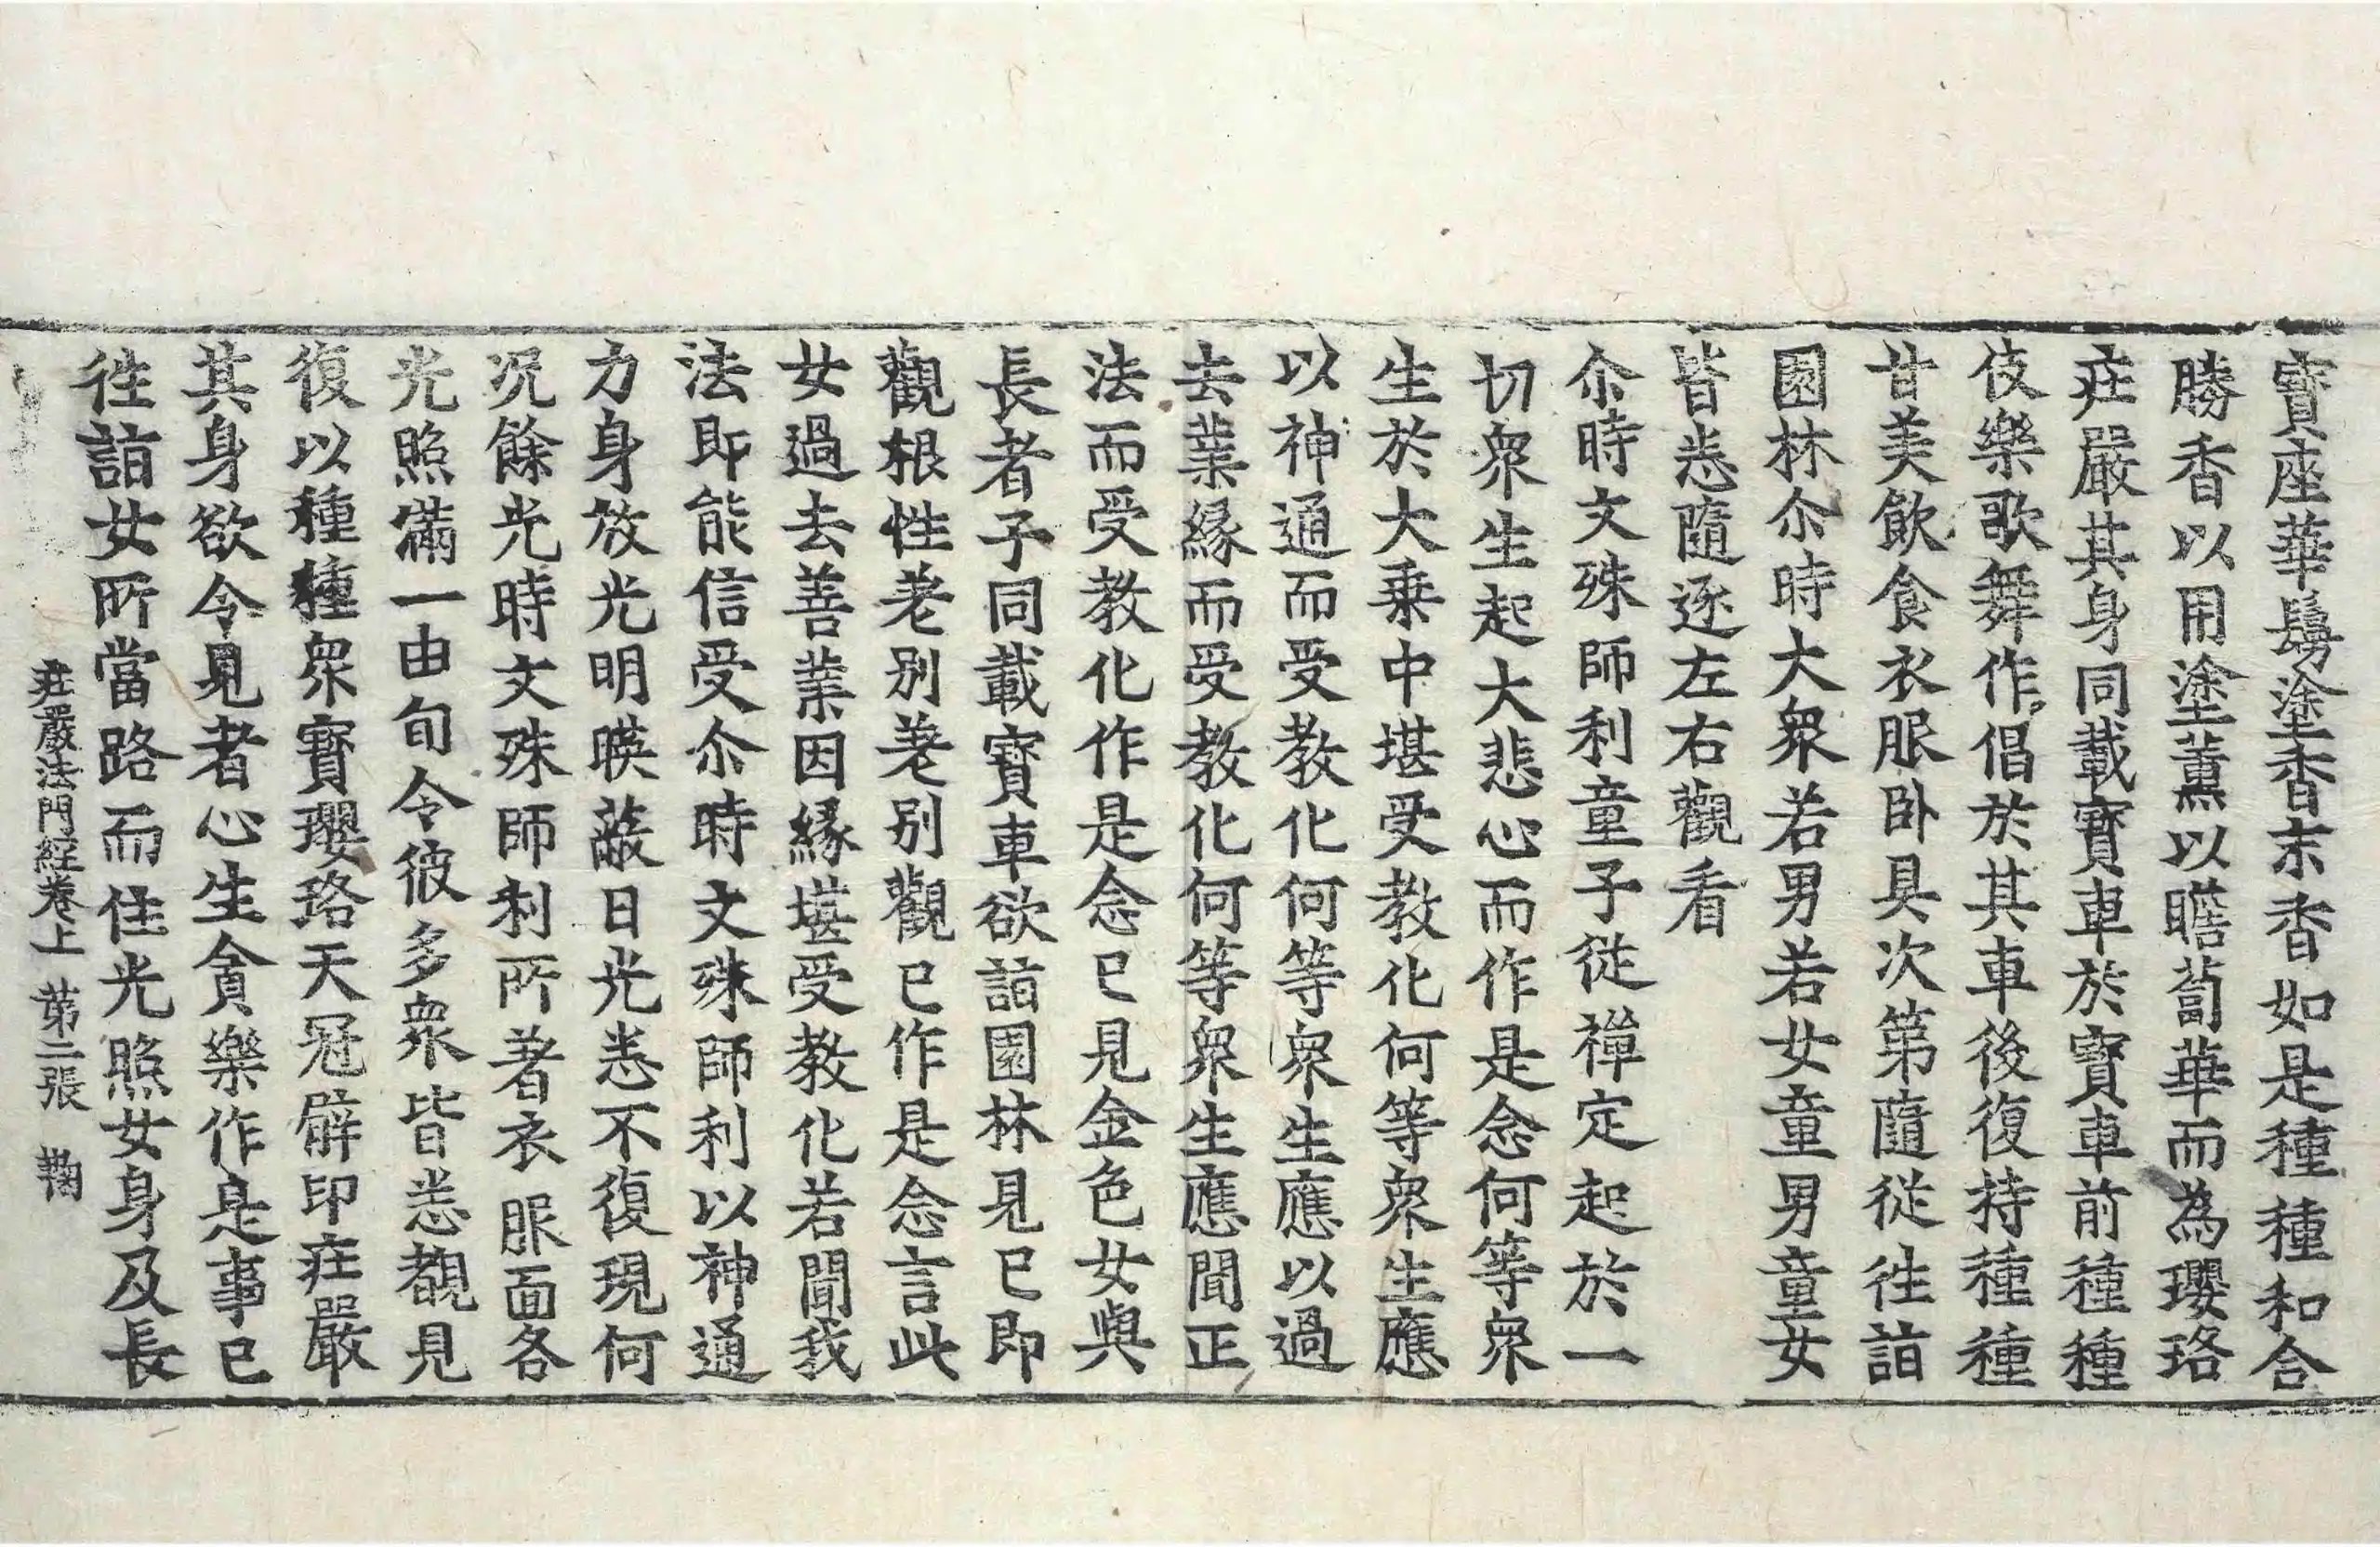 寶座華鬘塗香末香如是種種和合
勝香以用塗薰以瞻蔔華而為瓔珞
莊嚴其身同載寶車於寶車前種種
伎樂歌舞作倡於其車後復持種種
甘美飲食衣服卧具次第隨從往詣
園林尒時大衆若男若女童男童女
皆悉隨逐左右觀看
尒時文殊師利童子從禪定起於一
切衆生起大悲心而作是念何等衆
生於大乗中堪受教化何等衆生應
以神通而受教化何等衆生應以過
去業緣而受教化何等衆生應聞正
法而受教化作是念已見金色女與
長者子同載寶車欲詣園林見已即
觀根性差別差別觀已作是念言此
女過去善業因緣堪受教化若聞我
法即能信受尒時文殊師利以神通
力身放光明暎蔽日光悉不復現何
况餘光時文殊師利所著衣服面各
光照滿一由旬令彼多衆皆悉覩見
復以種種衆寶瓔珞天冠臂印莊嚴
其身欲令見者心生貪樂作是事已
往詣女所當路而住光照女身及長
莊嚴法門經卷上 第二張 鞠